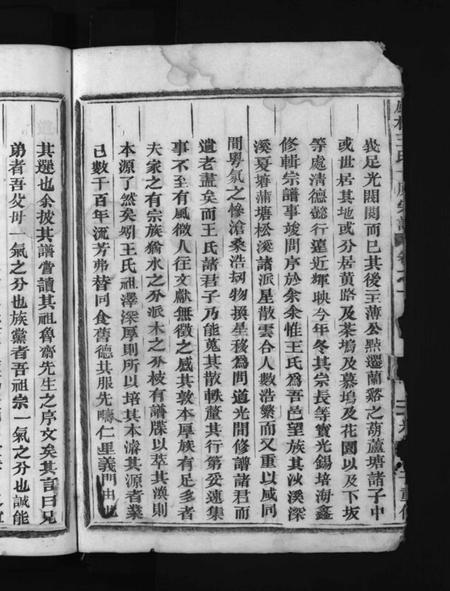 裝足光閥閱而已其後主薄公㸃遷蘭谿之葫蘆塘諸子中
或世居其地或分居黄路及茶塢及慕塢及花園以及下坂
等處清德懿行遠近輝映今年冬其宗長等寶光錫培海鑫
修輯宗譜事竣問序於余余惟王氏為吾邑望族其浹溪深
溪夏塘蒲塘松溪諸派星散雲合人數浩繁而又重以咸同
間粤氛之慘滄桑浩刼物換星移為問道光間修譜諸君而
遺老盡矣而王氏諸君子乃能蒐其散軼釐其行第妥速集
事不至有風微人往文獻無徵之感其敦本厚族有足多者
夫家之有宗族猶水之分派木之分枝有譜牒以萃其渙則
本源了然矣矧王氏祖澤深厚則所以培其本濬其源者業
已數千百年流芳弗替同食舊德其服先疇仁里義門由此
其選也余披其譜嘗讀其祖魯齋先生之序文矣其言曰兄
弟者吾父母一氣之分也族黨者吾祖宗一氣之分也誠能